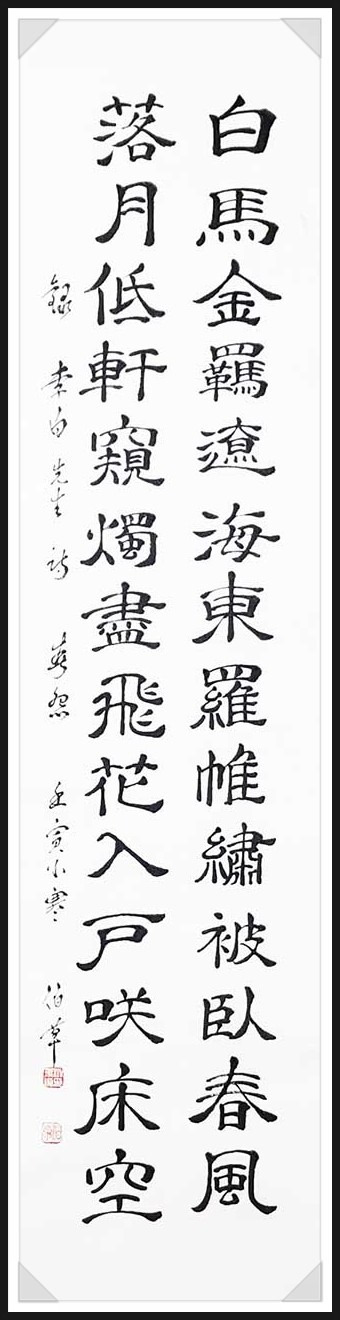 白馬金羈遼海東羅帷繡被臥春風
落月低軒窺燭盡飛花入戸咲床空
錄 李白先生 詩 春怨 壬寅小寒 伯草